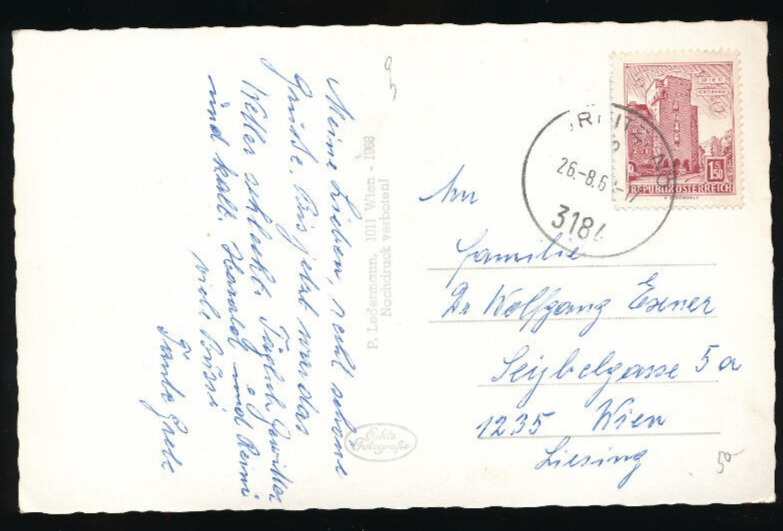 Meine Lieben, recht schöne
Grüße. Bis jetzt war das
Wetter schlecht. Täglich Gewitter
und kalt. Harald und Reini
viele Bussi
Tante Grete
P. Ledermann, 1011 Wien - 1968
Nachdruck verboten!
Echte
Fotografie
An
Familie
Dr Wolfgang Exner
Seybelgasse 5a
1235 Wien
Liesing
26.-8.6
3184
1.50
REPUBLIK ÖSTERREICH